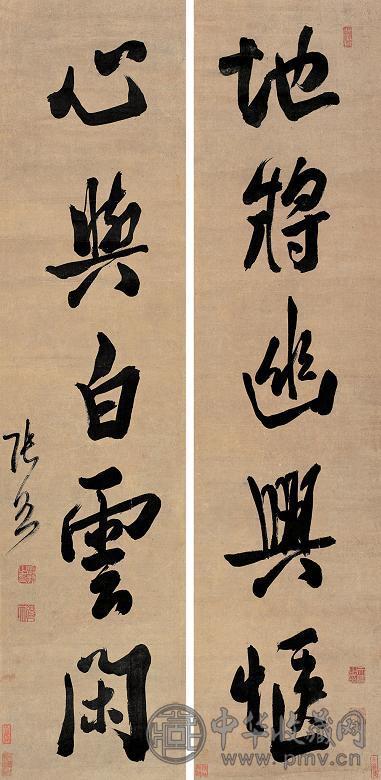 地將幽興愜
心與白雲閑
張
中华收藏网
www.pmv.cn